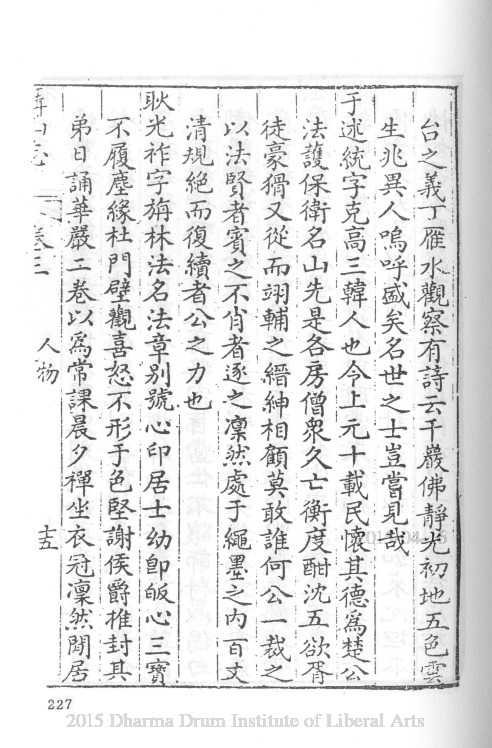 台之義丁雁水觀察有詩云千巖佛靜光初地五色雲
生兆異人嗚呼盛矣名世之士豈嘗見哉
于述統字克高三韓人也令上元十載民懷其德爲楚公
法護保衛名山先是各房僧衆久亡衡度酣沈五欲胥
徒豪猾又從而翊輔之縉紳相顧莫敢誰何公一裁之
以法賢者賓之不肖者逐之凜然處于繩墨之内百丈
清規絶而復續者公之力也
耿光祚字旃林法名法章別號心印居士幼卽皈心三寶
不履塵緣杜門壁觀喜怒不形于色堅謝侯爵推封其
弟日誦華嚴二卷以爲常課晨夕禪坐衣冠凜然閒居
山志 卷三 人物 十五
227
2015 Dharma Drum Institute of Liberal Arts